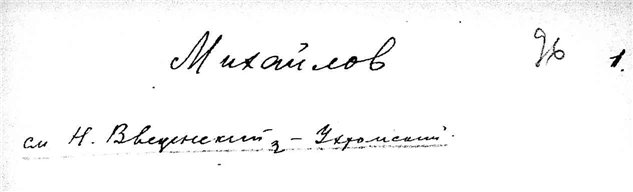 Михайлов 96 1.
см Н. Введенский - Ухтомский.